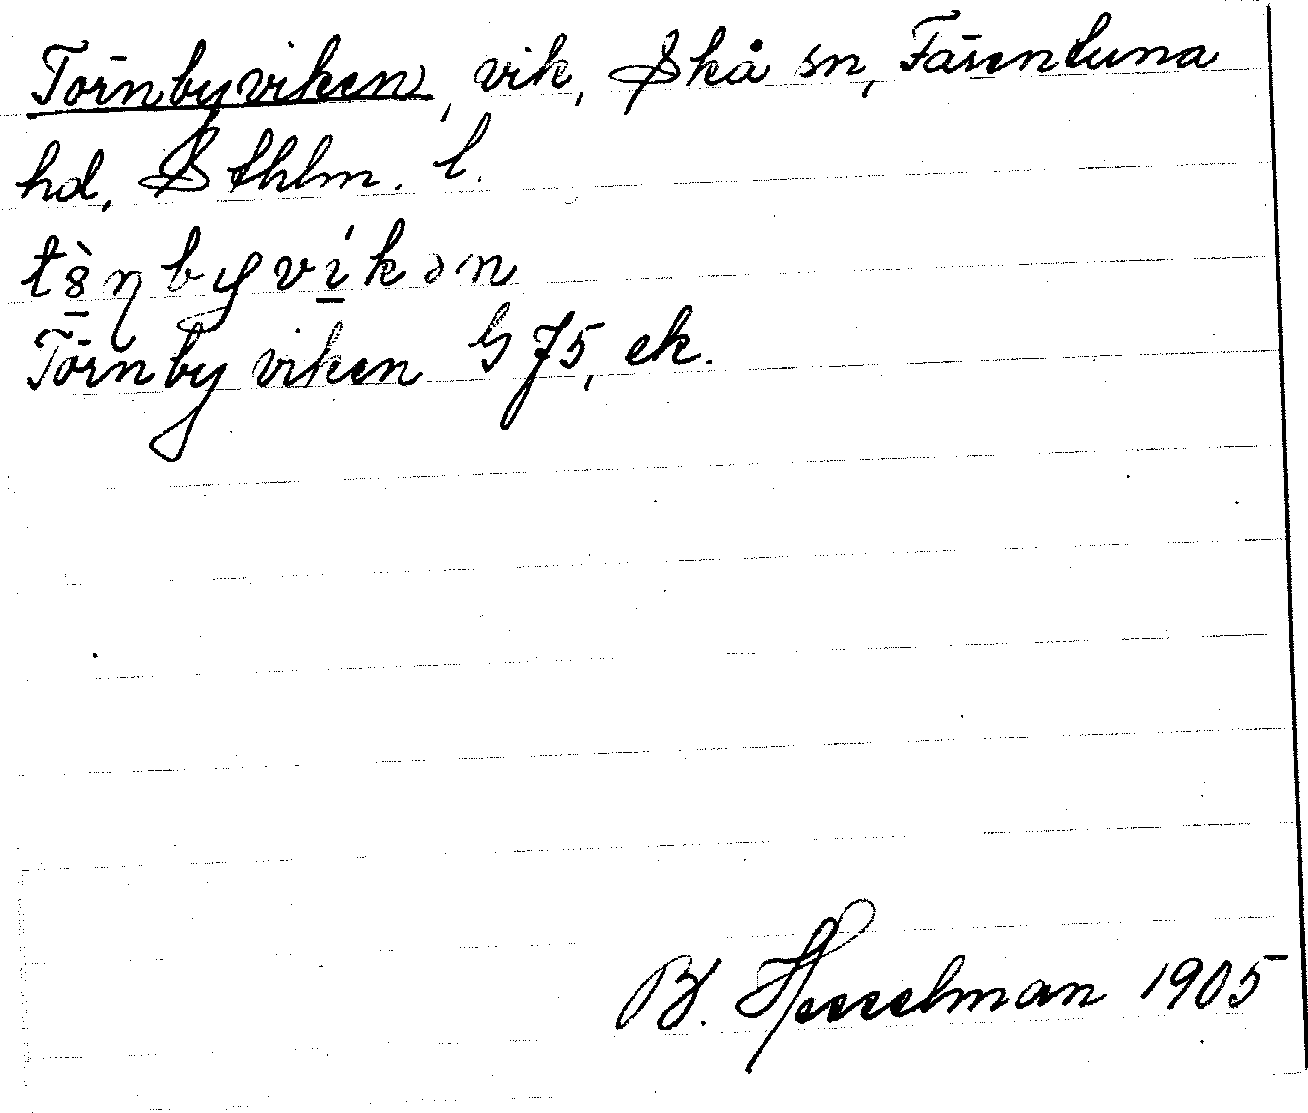 Törnbyviken, vik, Skå sn, Färentuna
hd, Sthlm. l.
Törnbyviken G 75, ek.
B. Hesselman 1905